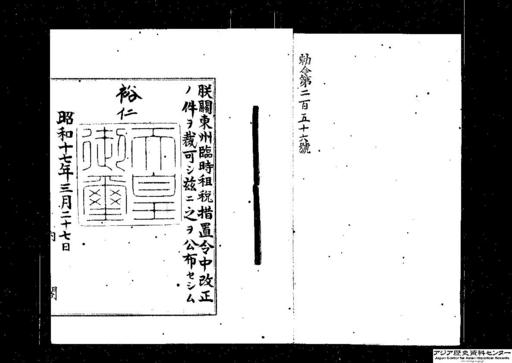 勅令第二百五十六號
朕關東州臨時租税措置令中改正
ノ件ヲ裁可シ茲ニ之ヲ公布セシム
裕仁
天皇
御璽
昭和十七年三月二十七日
内
閣
アジア歴史資料センター
Japan Center for Asian Historical Records